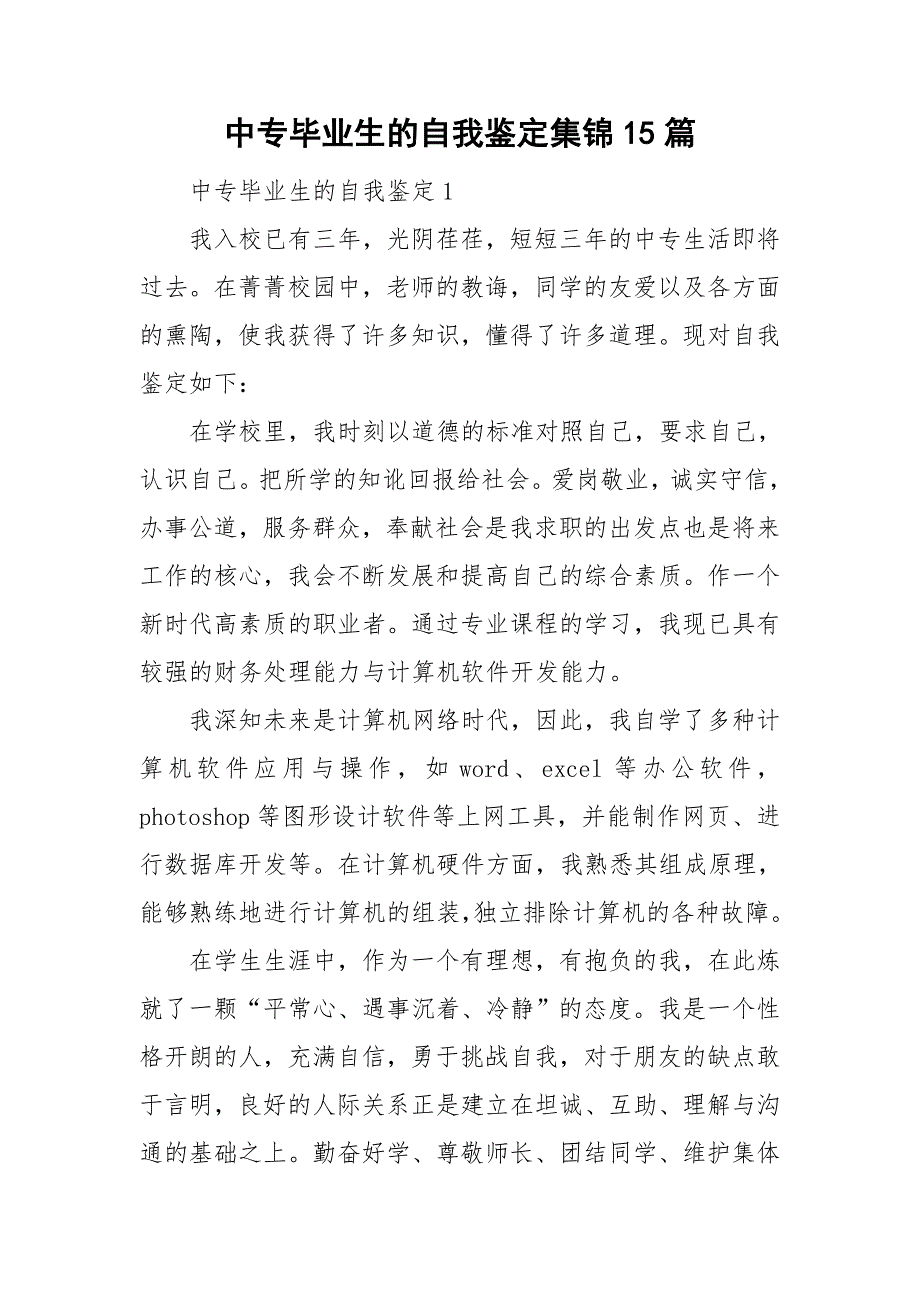 中专毕业生的自我鉴定集锦15篇
中专毕业生的自我鉴定1
我入校已有三年，光阴荏荏，短短三年的中专生活即将
过去。在菁菁校园中，老师的教诲，同学的友爱以及各方面
的熏陶，使我获得了许多知识，懂得了许多道理。现对自我
鉴定如下：
在学校里，我时刻以道德的标准对照自己，要求自己，
认识自己。把所学的知讹回报给社会。爱岗敬业，诚实守信，
办事公道，服务群众，奉献社会是我求职的出发点也是将来
工作的核心，我会不断发展和提高自己的综合素质。作一个
新时代高素质的职业者。通过专业课程的学习，我现已具有
较强的财务处理能力与计算机软件开发能力。
我深知未来是计算机网络时代，因此，我自学了多种计
算机软件应用与操作，如word、excel等办公软件，
photoshop等图形设计软件等上网工具，并能制作网页、进
行数据库开发等。在计算机硬件方面，我熟悉其组成原理，
能够熟练地进行计算机的组装，独立排除计算机的各种故障。
在学生生涯中，作为一个有理想，有抱负的我，在此炼
就了一颗“平常心、遇事沉着、冷静”的态度。我是一个性
格开朗的人，充满自信，勇于挑战自我，对于朋友的缺点敢
于言明，良好的人际关系正是建立在坦诚、互助、理解与沟
通的基础之上。勤奋好学、尊敬师长、团结同学、维护集体